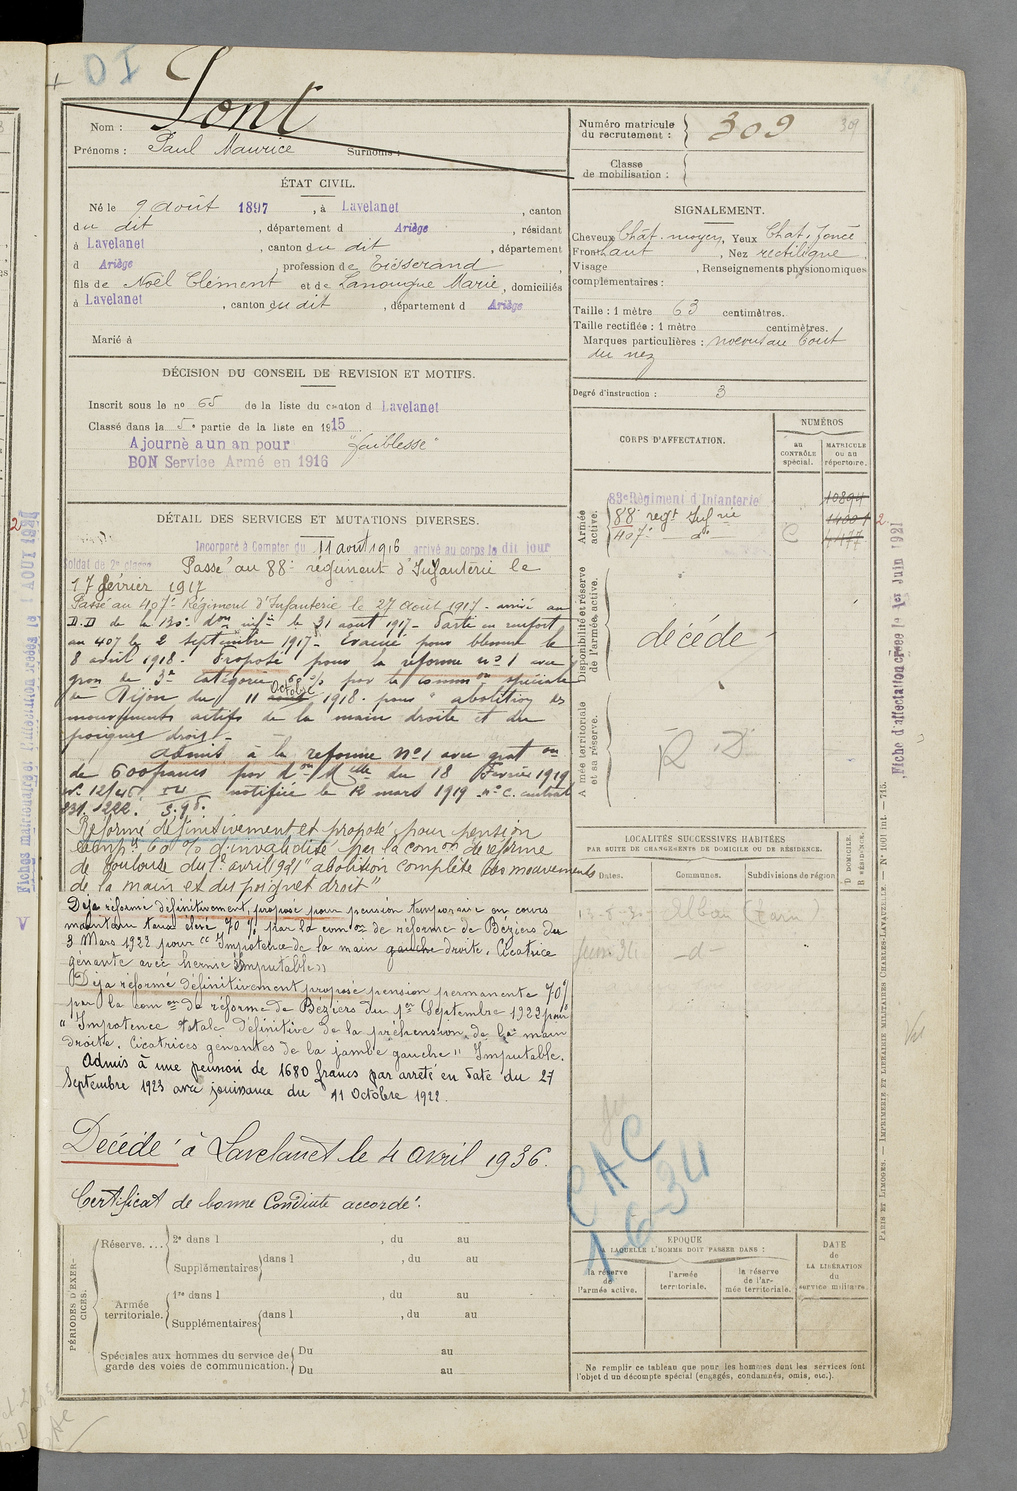 DI
Nom : Pont
Prénoms : Paul Maurice Surnoms :
ÉTAT CIVIL.
Né le 9 août 1897, à Lavelanet, canton
du dit, département d Ariège, résidant
à Lavelanet, canton du dit, département
d Ariège, profession de Tisserand
fils de Noël Clément et de Lanougue Marie, domiciliés
à Lavelanet, canton du dit, département d Ariège
Marié à
DÉCISION DU CONSEIL DE REVISION ET MOTIFS.
Inscrit sous le no 65 de la liste du canton d Lavelanet
Classé dans la 5e partie de la liste en 1915.
Ajourné a un an pour "faiblesse"
BON Service Armé en 1916
DÉTAIL DES SERVICES ET MUTATIONS DIVERSES.
Incorporé à Compter du 11 août 1916 arrivé au corps le dit jour
Soldat de 2e classe Passé au 88e régiment d'Infanterie le
17 février 1917
Passé au 407e Régiment d'Infanterie le 27 août 1917 - arrivé au
D.D de la 130e don infie le 31 août 1917 - Parti en renfort
au 407 le 2 septembre 1917 - Evacué pour blessure le
8 avril 1918 - Proposé pour la réforme no 1 avec
gron de 3e catégorie par la common spéciale
de Dijon du 11 août Octobre 1918 - pour "abolition des
mouvements actifs de la main droite et du
poignet droit -
Admis à la reforme No 1 avec grat on
de 600 francs par don Mlle du 18 Fevrier 1919
notifiée le 12 mars 1919 - no C. central
Reformé définitivement et proposé pour pension
temp. 60 % d'invalidité par la comon de reforme
de Toulouse du 1er avril 921 "abolition complète des mouvements
de la main et du poignet droit"
Déjà réformé définitivement, proposé pour pension temporaire en cours
maintenu taux élevé 70 % par la comon de réforme de Béziers du
3 Mars 1922 pour "Impotence de la main gauche droite. Cicatrice
gênante avec hernie Imputable"
Déjà réformé définitivement proposé pension permanente 70 %
par la comon de réforme de Béziers du 1er Septembre 1922 pour
"Impotence totale définitive de la préhension de la main
droite. Cicatrices gênantes de la jambe gauche" Imputable.
Admis à une pension de 1680 francs par arrêté en date du 27
Septembre 1923 avec jouissance du 11 Octobre 1922.
Décédé à Lavelanet le 4 avril 1936.
Certificat de bonne Conduite accordé.
PÉRIODES D'EXERCICES.
Réserve.... 2e dans l , du au
Supplémentaires dans l , du au
Armée territoriale. 1re dans l , du au
Supplémentaires dans l , du au
Spéciales aux hommes du service de garde des voies de communication. Du au
Du au
Numéro matricule du recrutement : 309
309
Classe de mobilisation :
SIGNALEMENT.
Cheveux Chât. moyen, Yeux Chat. foncé
Front haut, Nez rectiligne
Visage , Renseignements physionomiques
complémentaires :
Taille : 1 mètre 63 centimètres.
Taille rectifiée : 1 mètre centimètres.
Marques particulières : noeud au bout
du nez
Degré d'instruction : 3
CORPS D'AFFECTATION.
NUMÉROS
au CONTRÔLE spécial.
MATRICULE ou au répertoire.
Armée active.
83e Régiment d'Infanterie
88e regt Infrie
407e do C
Disponibilité et réserve de l'armée active.
décédé
Armée territoriale et sa réserve.
R. D
LOCALITÉS SUCCESSIVES HABITÉES
PAR SUITE DE CHANGEMENTS DE DOMICILE OU DE RÉSIDENCE.
Dates. Communes. Subdivisions de région
D DOMICILE. R RÉSIDENCE.
Alban (Tarn)
-d-
CAC
1-6-34
ÉPOQUE
A LAQUELLE L'HOMME DOIT PASSER DANS :
la réserve de l'armée active.
l'armée territoriale.
la réserve de l'armée territoriale.
DATE de LA LIBÉRATION du service militaire.
Ne remplir ce tableau que pour les hommes dont les services font
l'objet d'un décompte spécial (engagés, condamnés, omis, etc.).
Fiche d'affectation créée le 1er Juin 1921
PARIS ET LIMOGES. — IMPRIMERIE ET LIBRAIRIE MILITAIRES CHARLES-LAVAUZELLE.